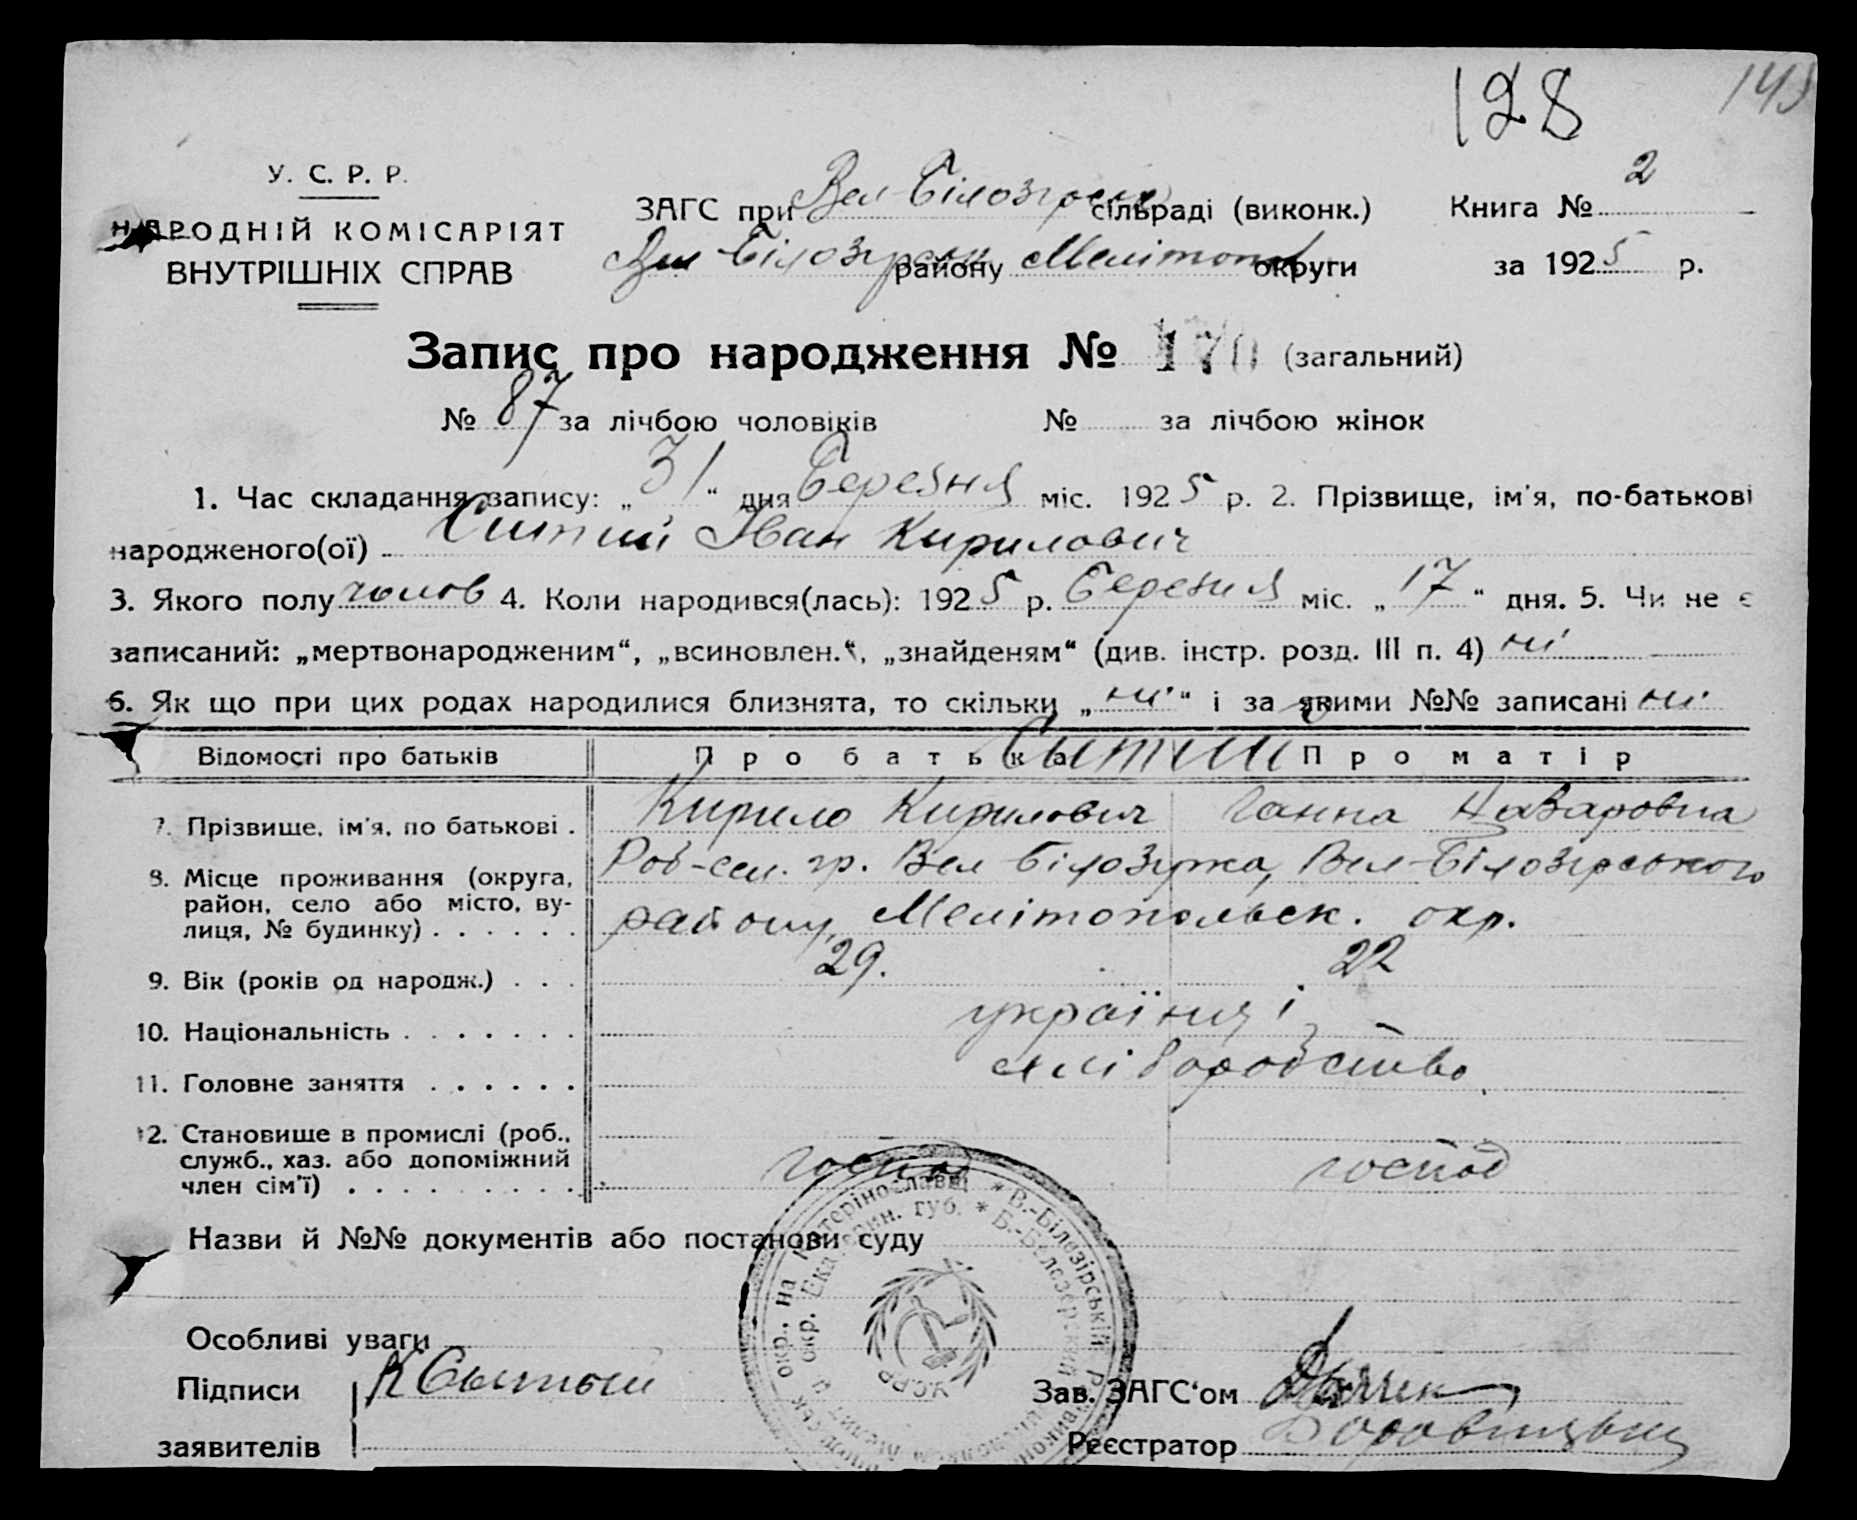 128 143
У. С. Р. Р.
НАРОДНІЙ КОМІСАРІЯТ
ВНУТРІШНІХ СПРАВ
ЗАГС при Вел-Білозірськ сільраді (виконк.) Книга № 2
Вел Білозірськ району Мелітоп округи за 1925 р.
Запис про народження № 170 (загальний)
№ 87 за лічбою чоловіків № за лічбою жінок
1. Час складання запису: „31“ дня Березня міс. 1925 р. 2. Прізвище, ім'я, по-батькові
народженого(ої) Ситий Іван Кирилович
3. Якого полу чолов 4. Коли народився(лась): 1925 р. Березня міс. „17“ дня. 5. Чи не є
записаний: „мертвонародженим“, „всиновлен.“, „знайденям“ (див. інстр. розд. III п. 4) ні
6. Як що при цих родах народилися близнята, то скільки „ні“ і за якими №№ записані ні
Відомості про батьків Про батька Сытий Про матір
7. Прізвище, ім'я, по батькові . Кирило Кирилович Ганна Назаровна
8. Місце проживання (округа, район, село або місто, ву-лиця, № будинку) . . . . . . Роб-сел. гр. Вел Білозірка, Вел-Білозірського
району, Мелітопольск. окр.
9. Вік (років од народж.) . . . 29. 22
10. Національність . . . . . . . українці
11. Головне заняття . . . . . . хліборобство
12. Становище в промислі (роб.,
служб., хаз. або допоміжний
член сім'ї) . . . . . . . . . . госпо господ
Назви й №№ документів або постанови суду
Особливі уваги
Підписи К Сытый Зав. ЗАГС'ом
заявителів Реєстратор
У.С.Р.Р.